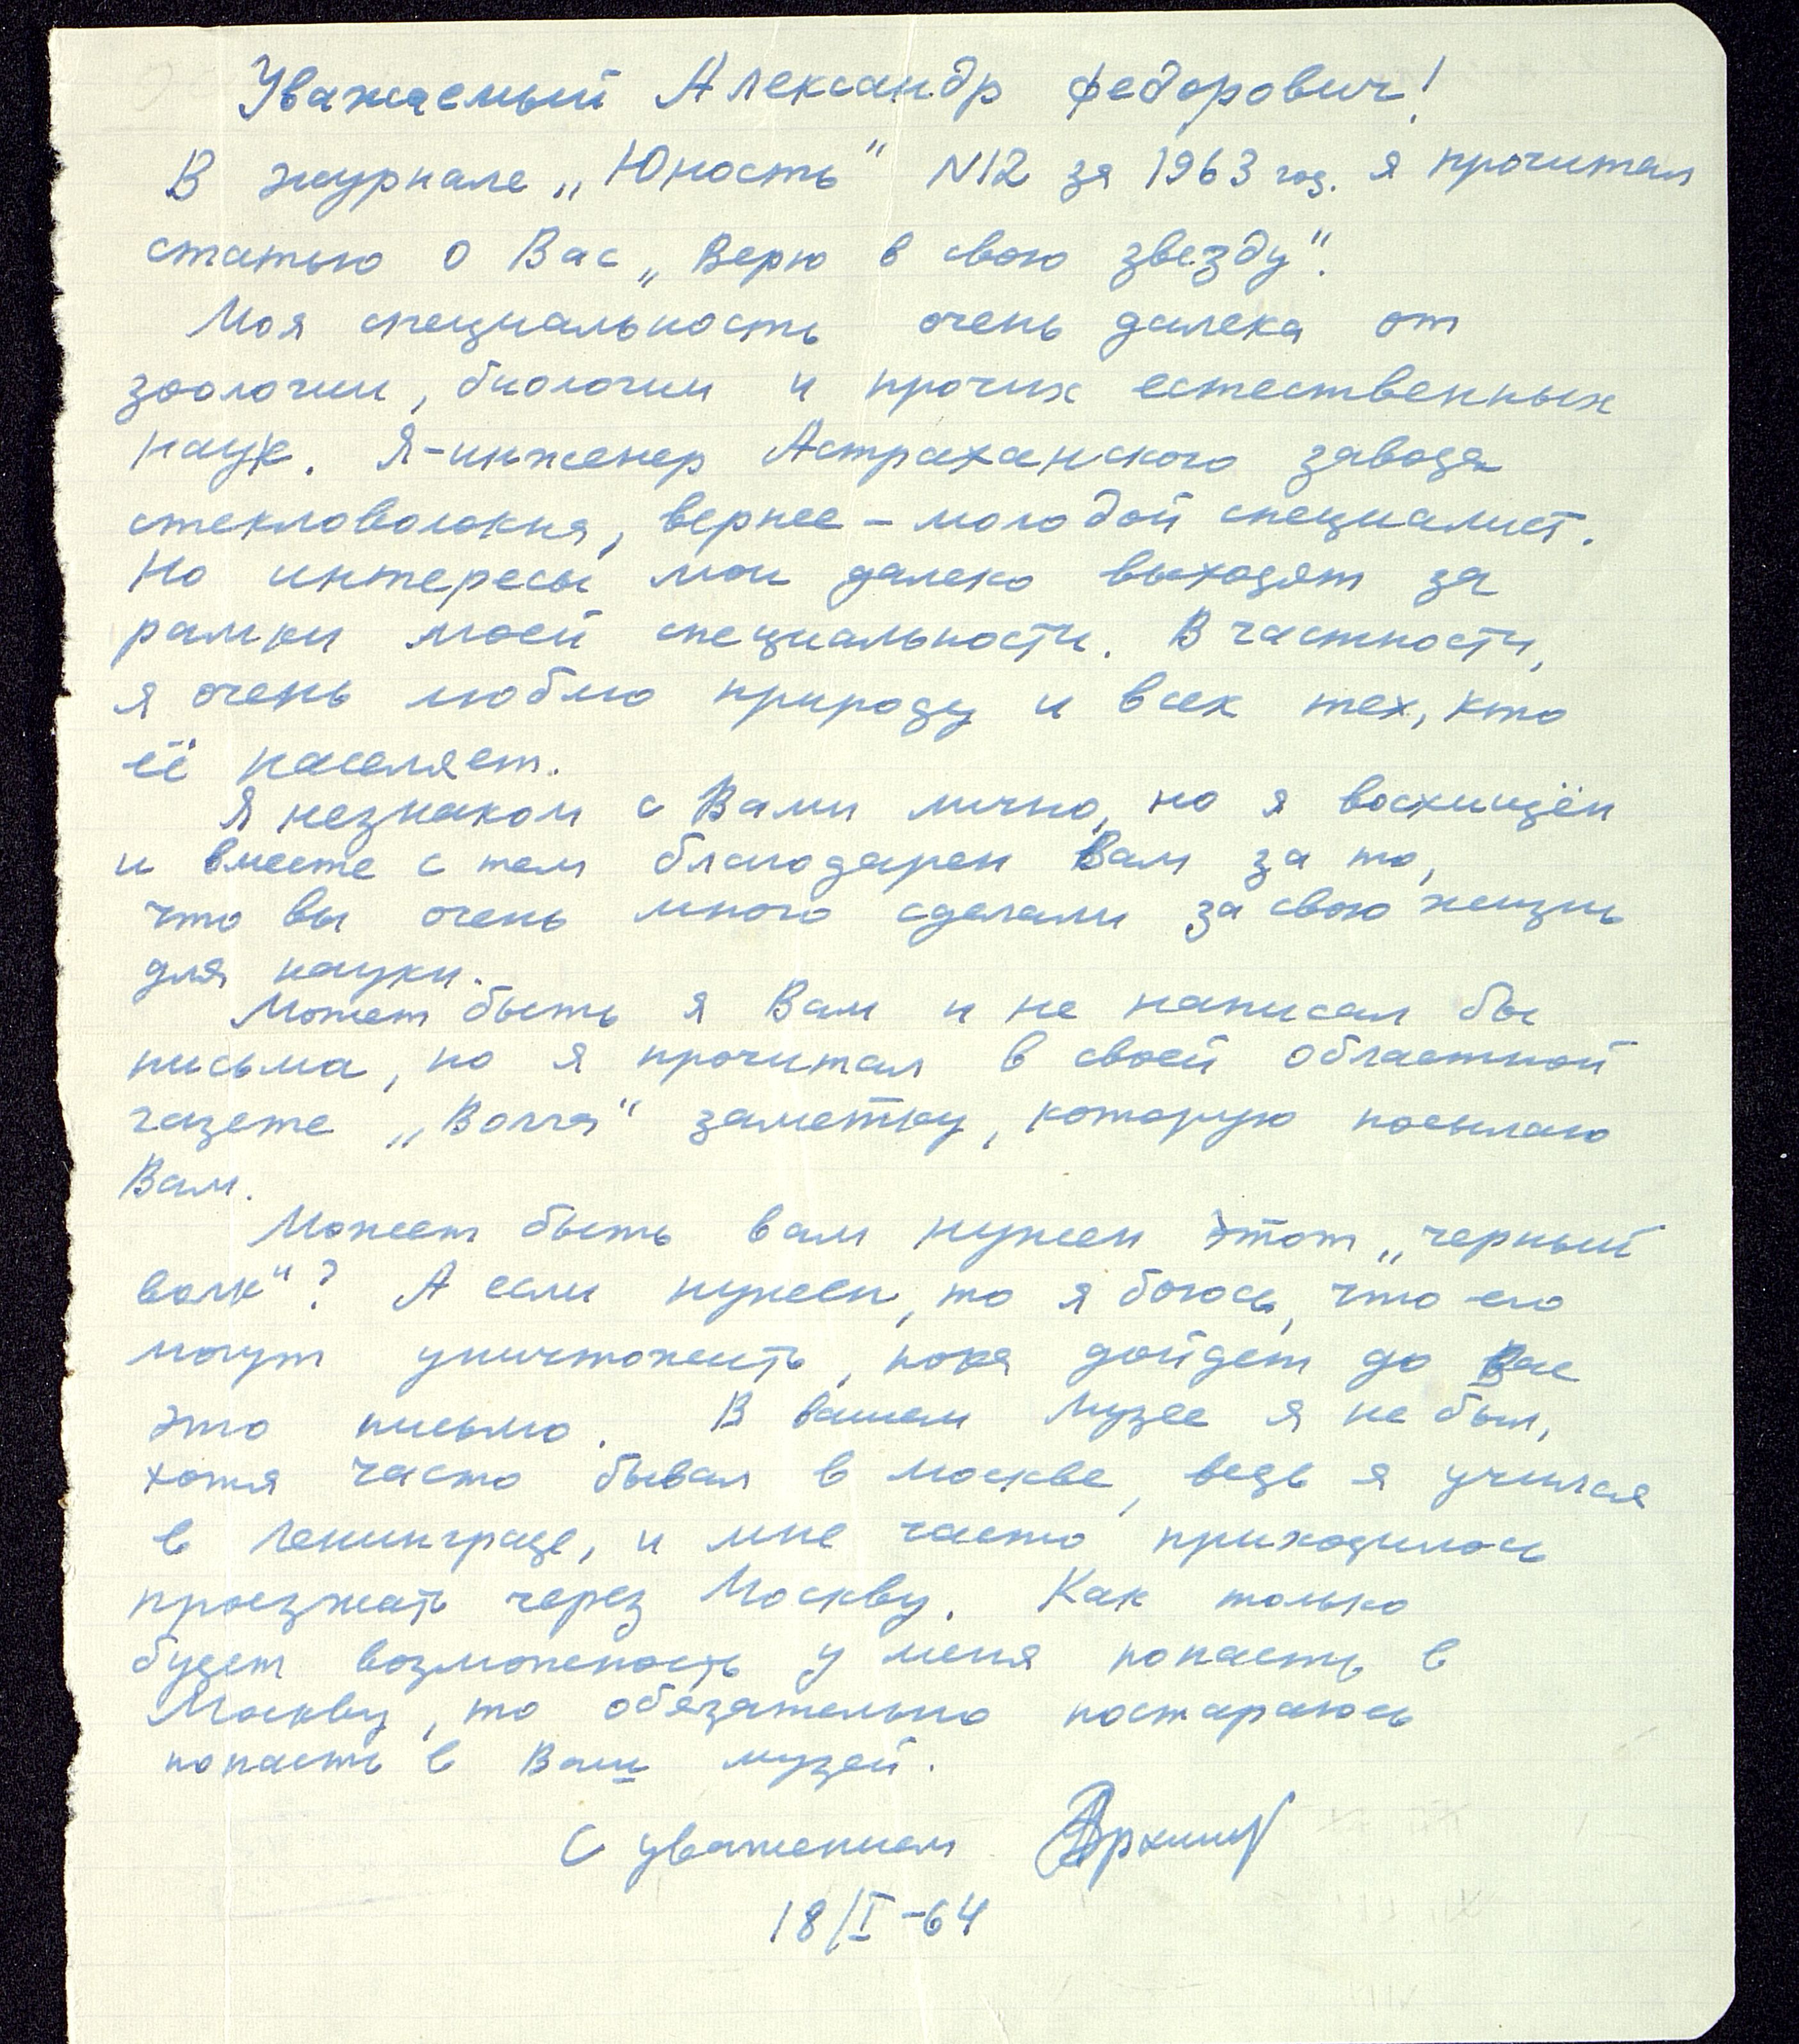 Уважаемый Александр Федорович!
В журнале „Юность" N12 за 1963 год. я прочитал
статью о Вас „Верю в свою звезду".
Моя специальность очень далека от
зоологии, биологии и прочих естественных
наук. Я-инженер Астраханского завода
стекловолокна, вернее – молодой специалист.
Но интересы мои далеко выходят за
рамки моей специальности. В частности,
я очень люблю природу и всех тех, кто
её населяет.
Я незнаком с Вами лично, но я восхищён
и вместе с тем благодарен Вам за то,
что вы очень много сделали за свою жизнь
для науки.
Может быть я Вам и не написал бы
письма, но я прочитал в своей областной
газете „Волга" заметку, которую посылаю
Вам.
Может быть вам нужен этот „черный
волк"? А если нужен, то я боюсь, что его
могут уничтожить, пока дойдет до Вас
это письмо. В вашем Музее я не был,
хотя часто бывал в москве, ведь я учился
в Ленинграде, и мне часто приходилось
проезжать через Москву. Как только
будет возможность у меня попасть в
Москву, то обязательно постараюсь
попасть в Ваш музей.
С уважением
18/I-64